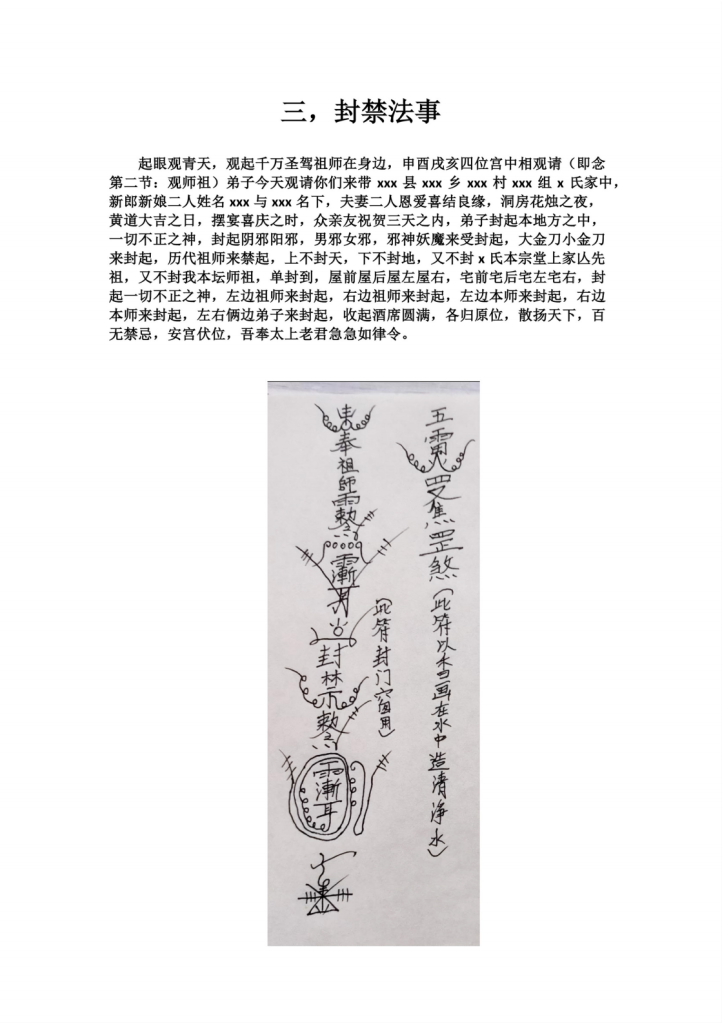 三，封禁法事
起眼观青天，观起千万圣驾祖师在身边，申酉戌亥四位宫中相观请（即念
第二节：观师祖）弟子今天观请你们来带 xxx 县 xxx 乡 xxx 村 xxx 组 x 氏家中，
新郎新娘二人姓名 xxx 与 xxx 名下，夫妻二人恩爱喜结良缘，洞房花烛之夜，
黄道大吉之日，摆宴喜庆之时，众亲友祝贺三天之内，弟子封起本地方之中，
一切不正之神，封起阴邪阳邪，男邪女邪，邪神妖魔来受封起，大金刀小金刀
来封起，历代祖师来禁起，上不封天，下不封地，又不封 x 氏本宗堂上家亾先
祖，又不封我本坛师祖，单封到，屋前屋后屋左屋右，宅前宅后宅左宅右，封
起一切不正之神，左边祖师来封起，右边祖师来封起，左边本师来封起，右边
本师来封起，左右俩边弟子来封起，收起酒席圆满，各归原位，散扬天下，百
无禁忌，安宫伏位，吾奉太上老君急急如律令。
五
罡煞（此符以木香画在水中造清净水）
（此符封门窗用）
奉祖師雨勅
漸耳
封禁勅
雨漸耳